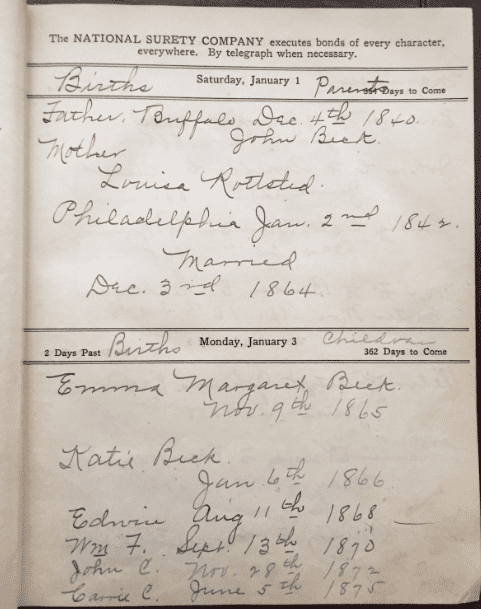 The NATIONAL SURETY COMPANY executes bonds of every character,
everywhere. By telegraph when necessary.
Births Saturday, January 1 Parents 364 Days to Come
Father. Buffalo Dec. 4th 1840.
John Beck.
Mother
Louisa Rottsted.
Philadelphia Jan. 2nd 1842.
Married
Dec. 3rd 1864.
2 Days Past Births Monday, January 3 Children 362 Days to Come
Emma Margaret Beck.
Nov. 9th 1865
Katie Beck.
Jan 6th 1866
Edwin Aug 11th 1868
Wm F. Sept. 13th 1870
John C. Nov. 28th 1872
Carrie C. June 5th 1875